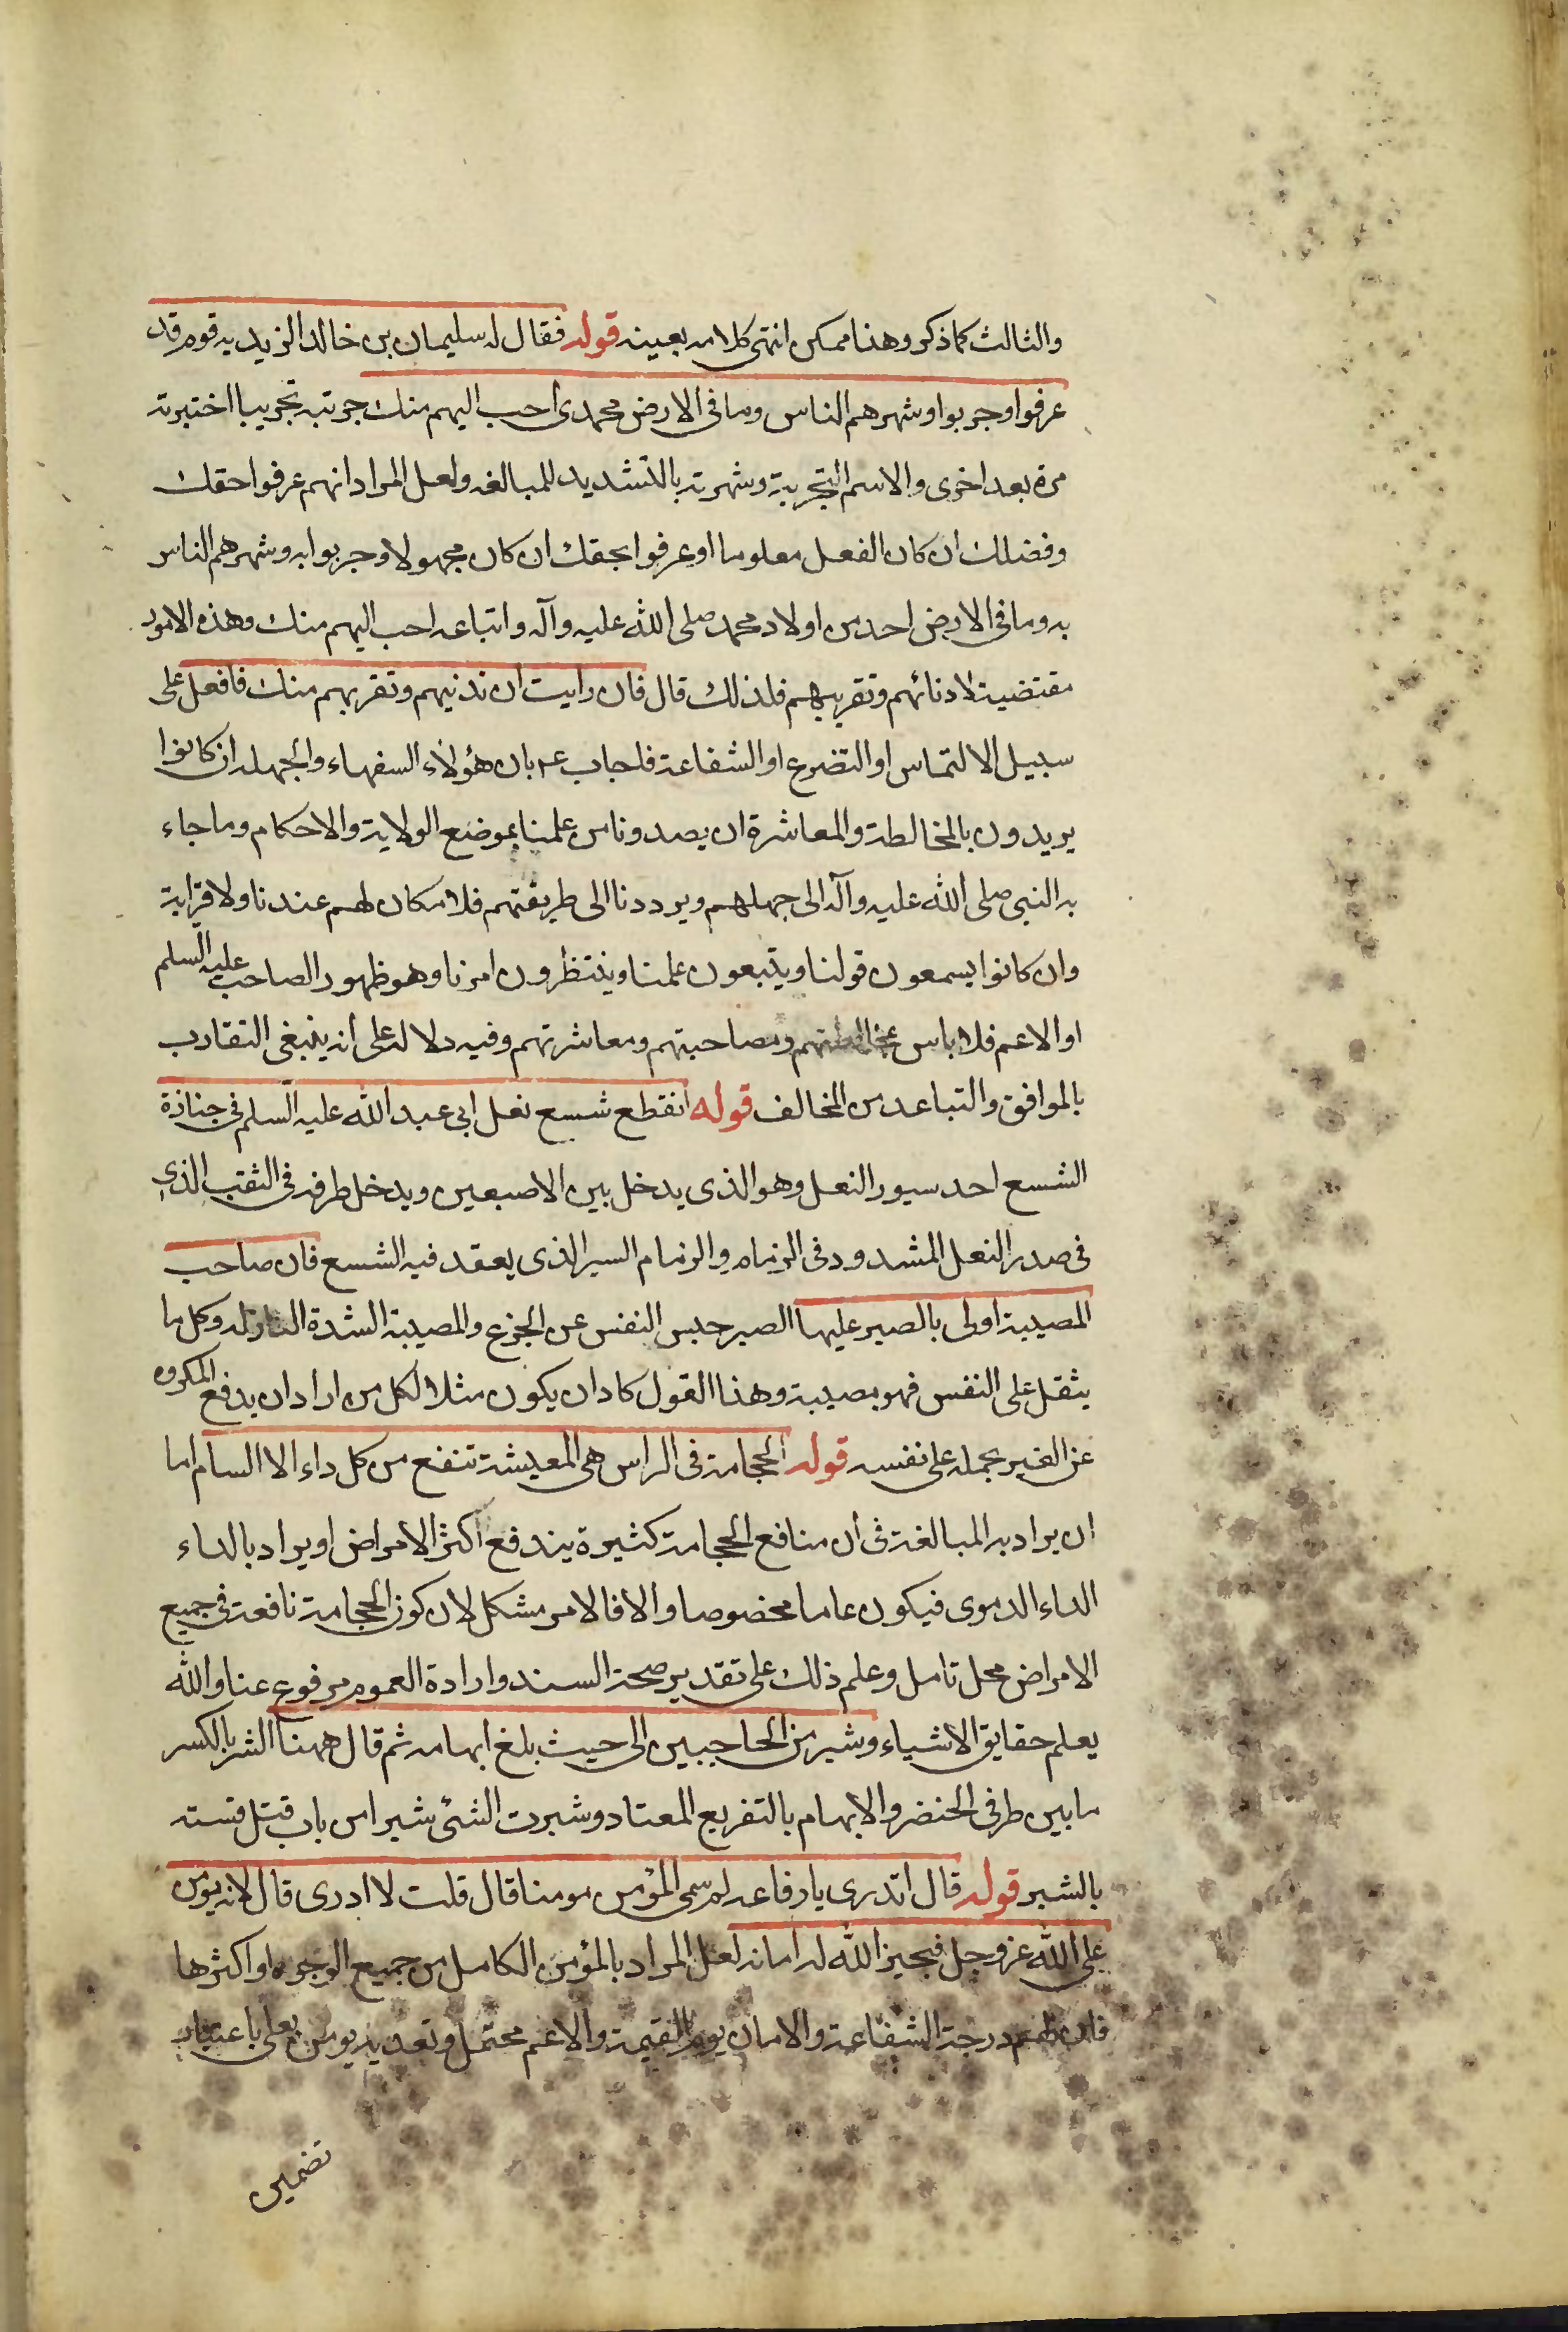 والثالث كما ذكر وهذا ممكن انتهى كلامه بعينه قوله فقال له سليمان بن خالد الزيديه قوم قد
عرفوا وجربوا وشهرهم الناس وما فى الارض محمدى احب اليهم منك جربته تجريبا اختبرته
مرة بعد اخرى والاسم التجربة وشهرته بالتشديد للمبالغه ولعل المراد انهم عرفوا حقك
وفضلك ان كان الفعل معلوما او عرفوا بحقك ان كان مجهولا وجربوا به وشهرهم الناس
به وما فى الارض احد من اولاد محمد صلى الله عليه وآله واتباعه احب اليهم منك وهذه الامور
مقتضية لادنائهم وتقريبهم فلذلك قال فان رايت ان تدنيهم وتقربهم منك فافعل على
سبيل الالتماس او التضرع او الشفاعة فاجاب ع بان هؤلاء السفهاء والجهلة ان كانوا
يريدون بالمخالطة والمعاشرة ان يصدونا من علمنا بموضع الولاية والاحكام وما جاء
به النبى صلى الله عليه وآله الى جهلهم ويرددنا الى طريقتهم فلا مكان لهم عندنا ولا قرابة
وان كانوا يسمعون قولنا ويتبعون علمنا وينتظرون امرنا وهو ظهور الصاحب عليه السلم
او الاعم فلا باس بمخالطتهم ومصاحبتهم ومعاشرتهم وفيه دلالة على انه ينبغى التقارب
بالموافق والتباعد من المخالف قوله انقطع شسع نعل ابى عبد الله عليه السلم فى جنازة
الشسع احد سيور النعل وهو الذى يدخل بين الاصبعين ويدخل طرفه فى الثقب الذى
فى صدر النعل المشدود فى الزمام والزمام السير الذى يعقد فيه الشسع فان صاحب
المصيبة اولى بالصبر عليها الصبر حبس النفس عن الجزع والمصيبة الشدة النازلة وكل ما
يثقل على النفس فهو مصيبة وهذا القول كاد ان يكون مثلا لكل من اراد ان يدفع المكروه
عن الغير بحمله على نفسه قوله الحجامة فى الراس هى المعيشة تنفع من كل داء الا السام اما
ان يراد به المبالغة فى أن منافع الحجامة كثيرة يندفع اكثر الامراض او يراد بالداء
الداء الدموى فيكون عاما مخصوصا والا فالامر مشكل لان كون الحجامة نافعة فى جميع
الامراض محل تامل وعلم ذلك على تقدير صحة السند وارادة العموم مرفوع عنا والله
يعلم حقايق الاشياء وشبر من الحاجبين الى حيث بلغ ابهامه ثم قال ههنا الشبر بالكسر
ما بين طرفى الخنصر والابهام بالتفريج المعتاد وشبرت الشئ شبرا من باب قتل قسته
بالشبر قوله قال اتدرى يا رفاعه لم سمى المؤمن مومنا قال قلت لا ادرى قال لانه يؤمن
على الله عز وجل فيجيز الله له امانه لعل المراد بالمؤمن الكامل من جميع الوجوه او اكثرها
فان لهم درجة الشفاعة والامان يوم القيمة والاعم محتمل وتعديه يومن بعلى باعتبار
تضمين